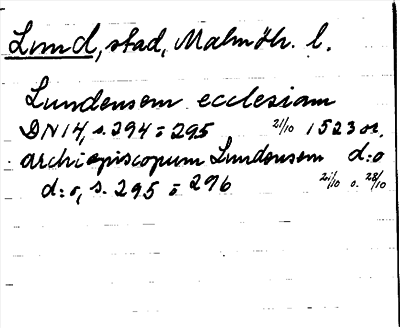 Lund, stad, Malmöh. l.
Lundensem ecclesiam
DN 14, s. 294 = 295 21/10 1523 or.
archiepiscopum Lundensem d:o
d:o, s. 295 = 296 21/10 o. 28/10